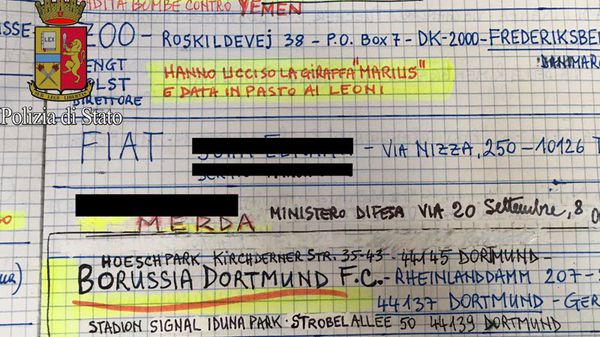 BOMBE CONTRO YEMEN
ZOO - ROSKILDEVEJ 38 - P.O. BOX 7 - DK-2000-FREDERIKSBE
DANMAR
ENGT
HANNO UCCISO LA GIRAFFA "MARIUS"
LST
E DATA IN PASTO AI LEONI
DIRETTORE
Polizia di Stato
FIAT - VIA NIZZA, 250-10126 T
MERDA MINISTERO DIFESA VIA 20 Settembre, 8
HOESCHPARK, KIRCHDERNER STR. 35-43 - 44145 DORTMUND-
BORUSSIA DORTMUND F.C. - RHEINLANDDAMM 207-
44137 DORTMUND - GER
STADION SIGNAL IDUNA PARK - STROBELALLEE 50 44139 DORTMUND